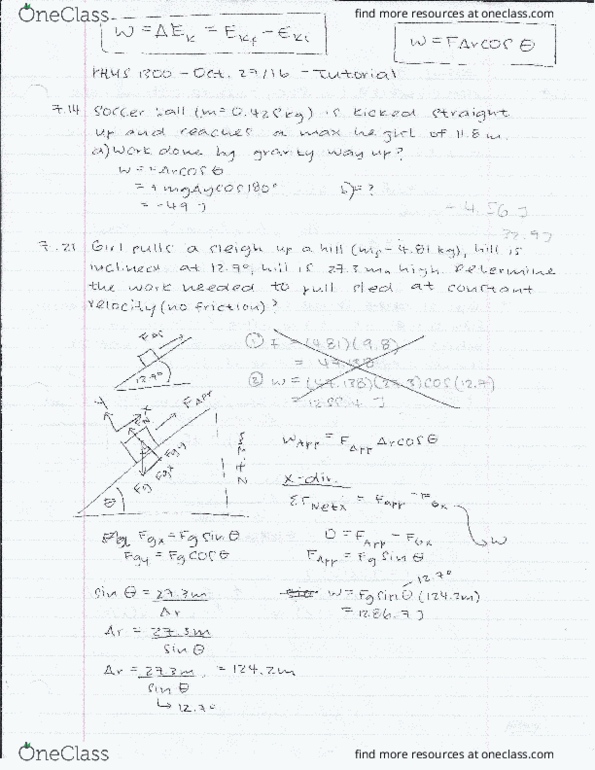 OneClass
find more resources at oneclass.com
W = ΔEk = Ekf - Eki
W = FΔrcosθ
PHYS 1300 - Oct. 27/16 - Tutorial
7.14 Soccer ball (m=0.425kg) is kicked straight
up and reaches a max height of 11.8m.
a) Work done by gravity way up?
W = FΔrcosθ
= mgΔycos180°
= -49 J
b) = ?
- 4.56 J
32.9 J
7.21 Girl pulls a sleigh up a hill (ms - 4.81 kg), hill is
inclined at 12.7°, hill is 27.3m high. Determine
the work needed to pull sled at constant
velocity (no friction)?
12.7°
① F = (4.81)(9.8)
= 47.138
② W = (47.138)(27.3)cos(12.7)
= 1255.4 J
y
x
FN
FApp
Fgy
Fgx
Fg
θ
27.3m
WApp = FApp Δrcosθ
x-dir.
ΣFNetx = Fapp - FGx
W
Fgx = Fg sinθ
Fgy = Fg cosθ
0 = FApp - FGx
FApp = Fg sinθ
12.7°
sinθ = 27.3m
Δr
W = Fg sinθ (124.2m)
= 1286.7 J
Δr = 27.3m
sinθ
Δr = 27.3m = 124.2m
sinθ
12.7°
OneClass
find more resources at oneclass.com